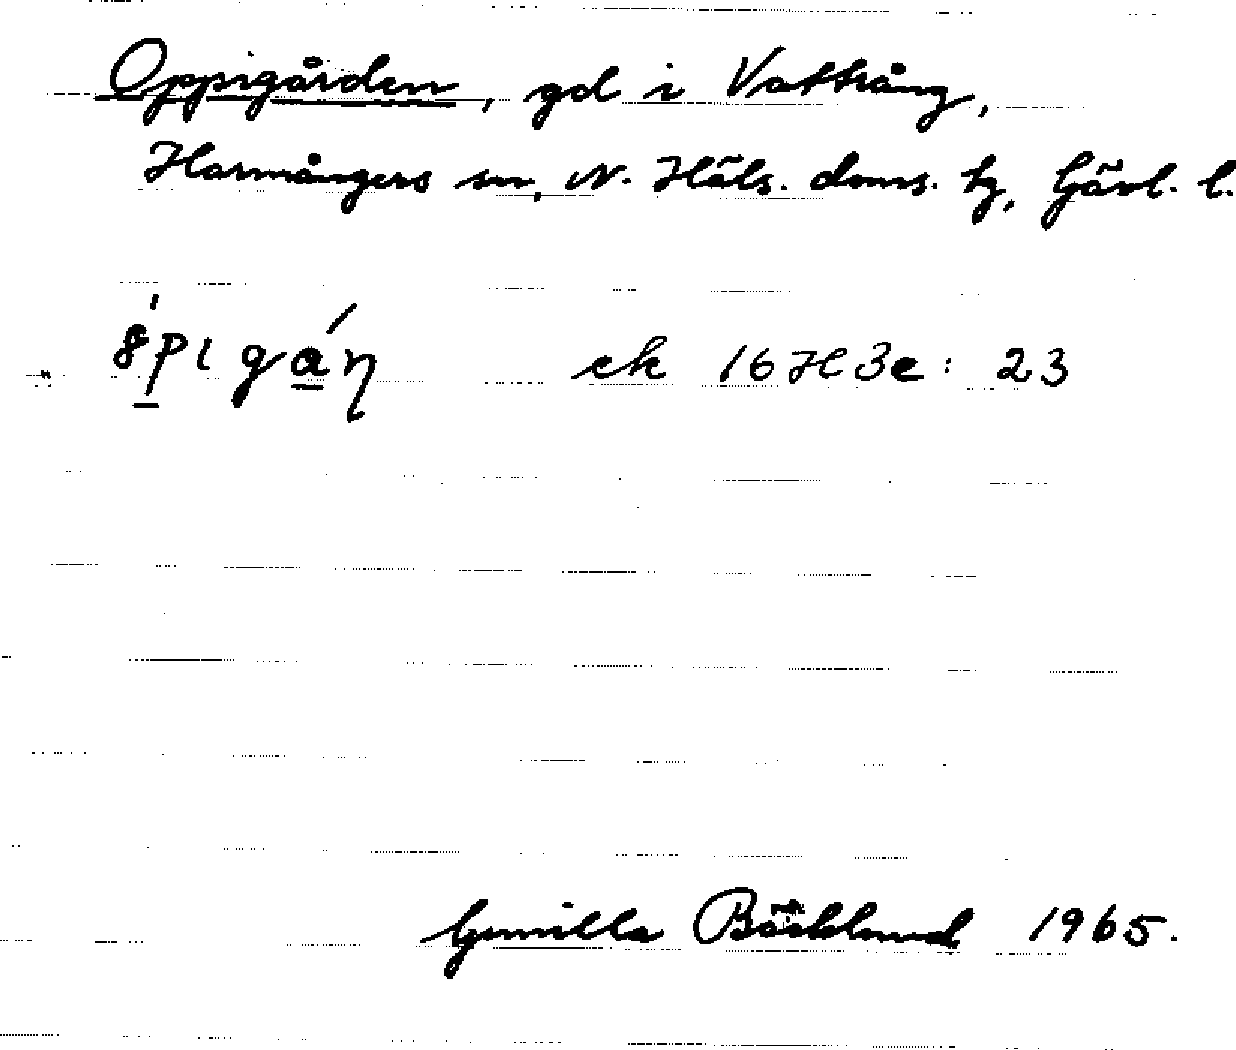 Oppigården, gd i Vattrång,
Harmångers sn, N. Häls. doms. hg, Gävl. l.
ek 16H3e: 23
Gunilla Bäcklund 1965.